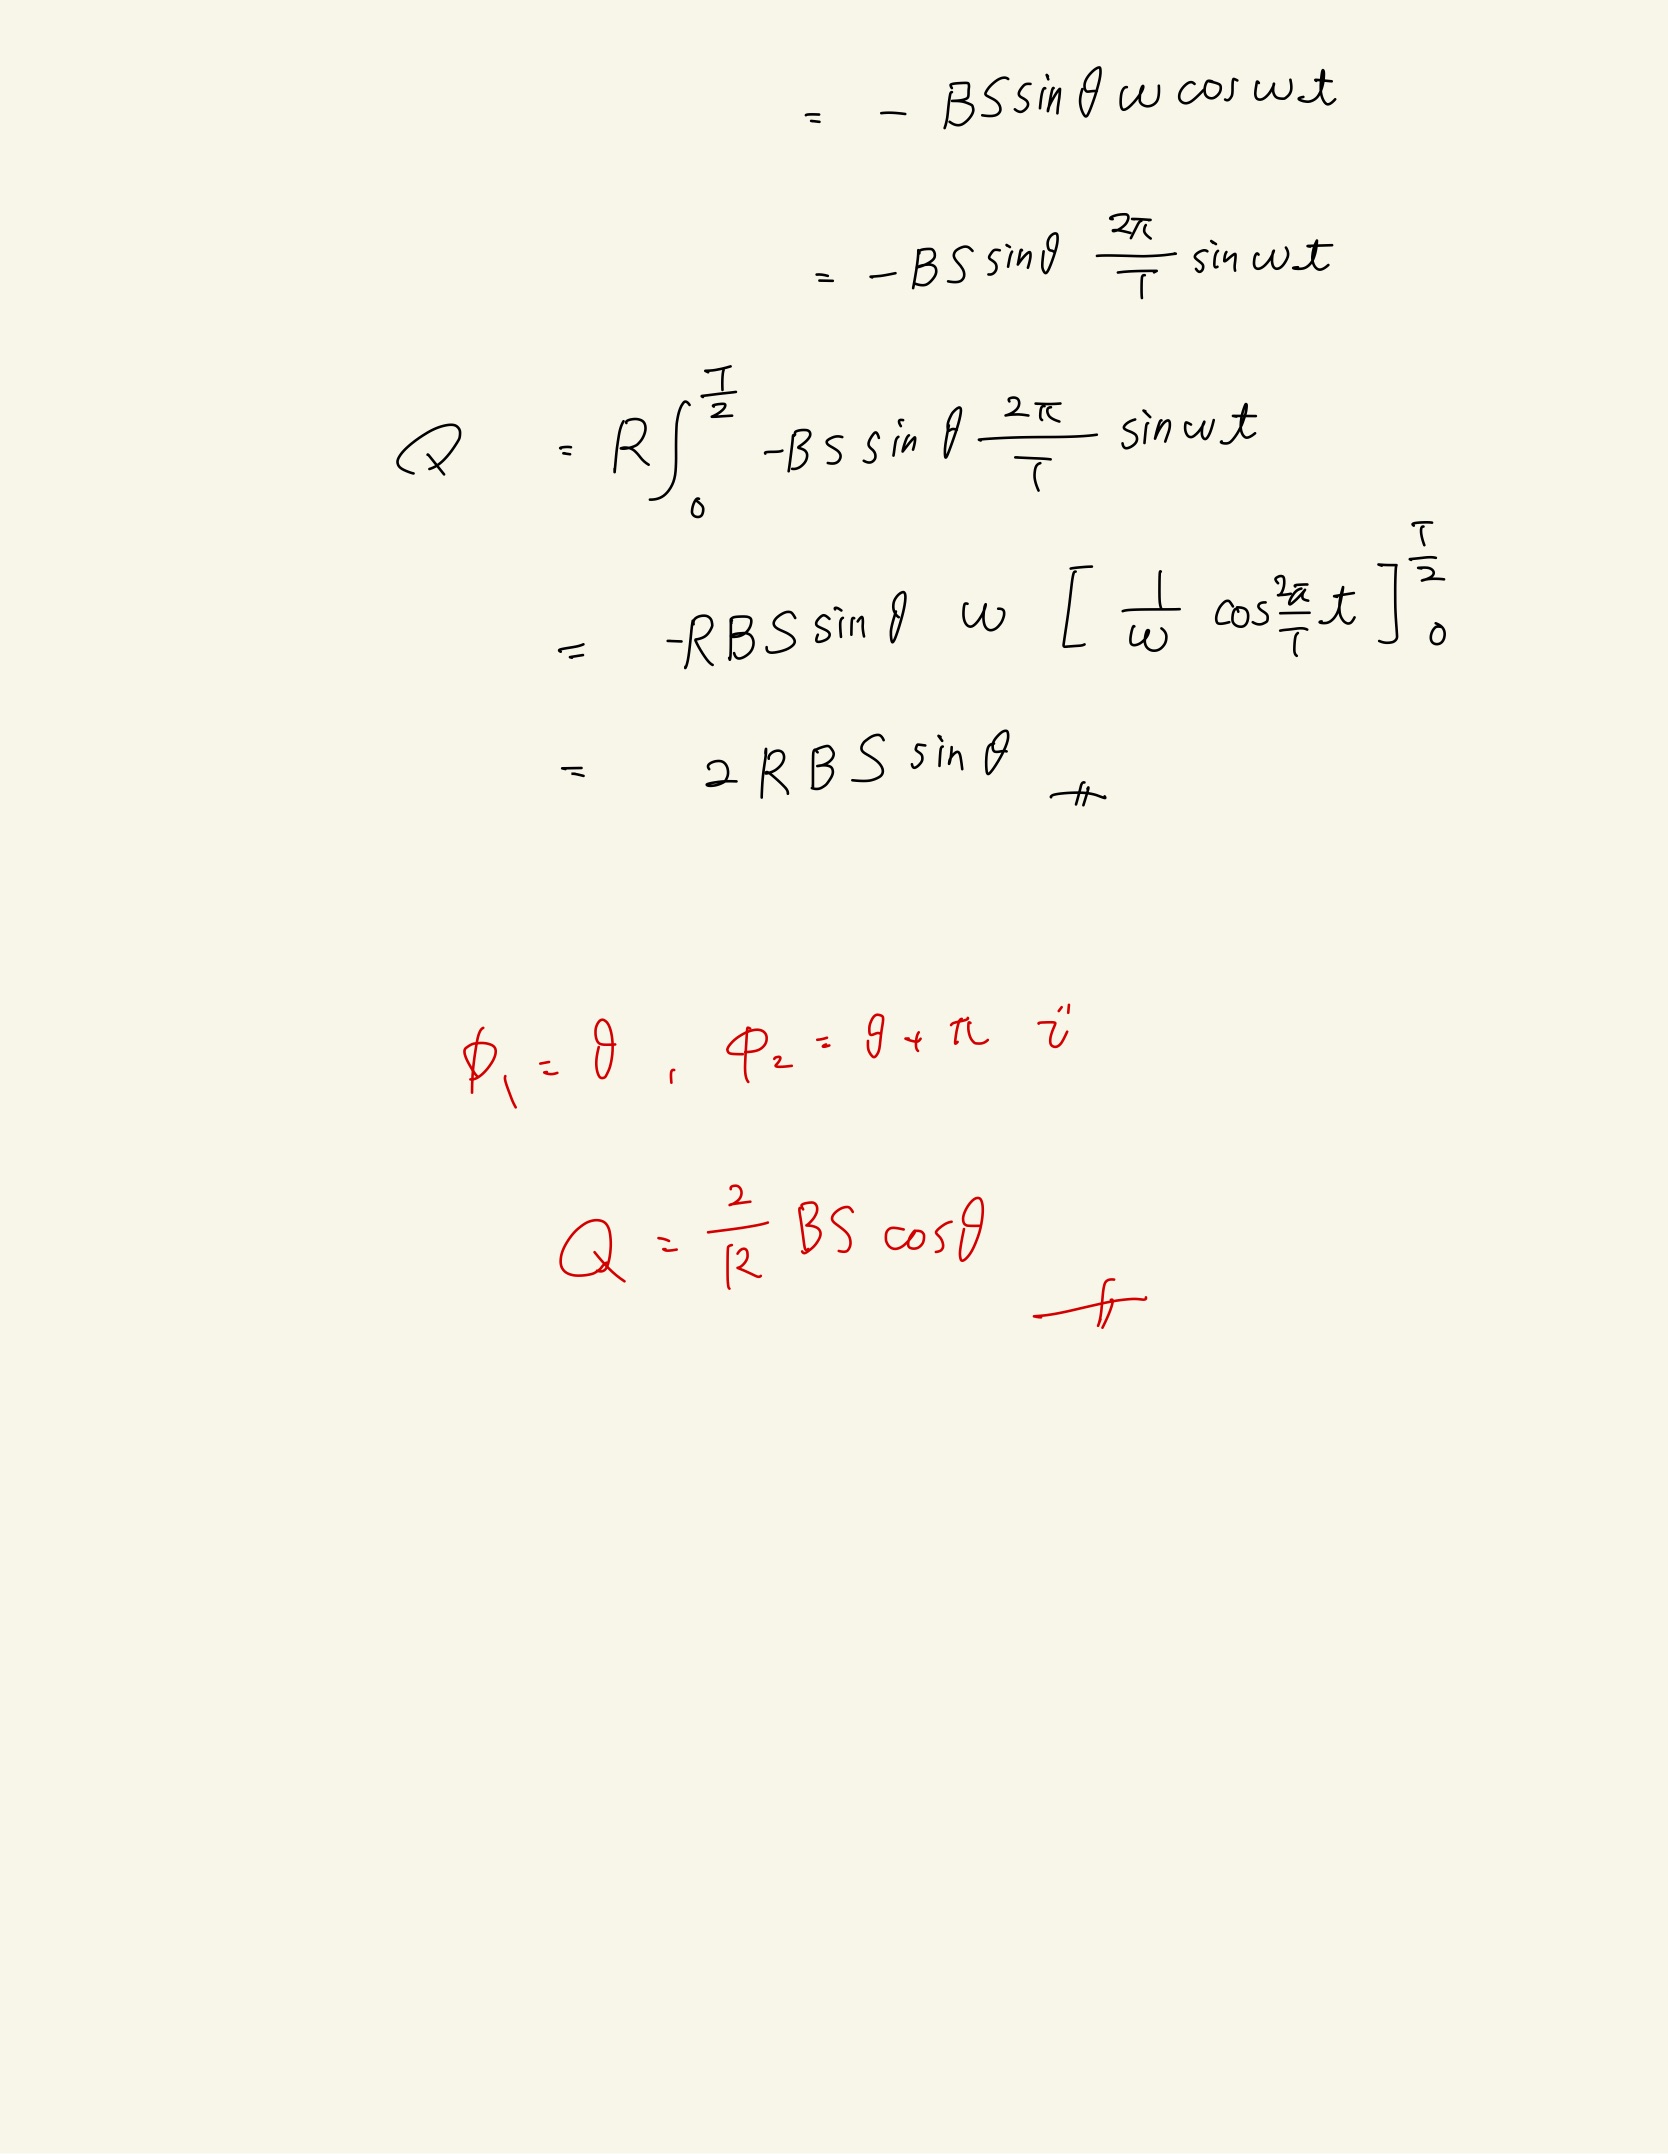 = - BS sinθ ω cos ωt
= - BS sinθ 2π/T sin ωt
Q = R ∫_0^{T/2} -BS sin θ 2π/T sin ωt
= -RBS sin θ ω [ 1/ω cos 2π/T t ]_0^{T/2}
= 2RBS sin θ
φ₁ = θ , φ₂ = θ + π
Q = 2/R BS cosθ